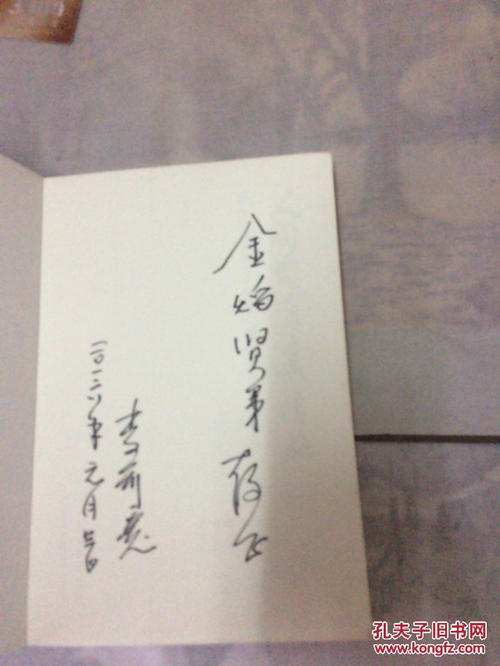 金焰贤弟存正
李前宽
二〇一六年元月
孔夫子旧书网
www.kongfz.com